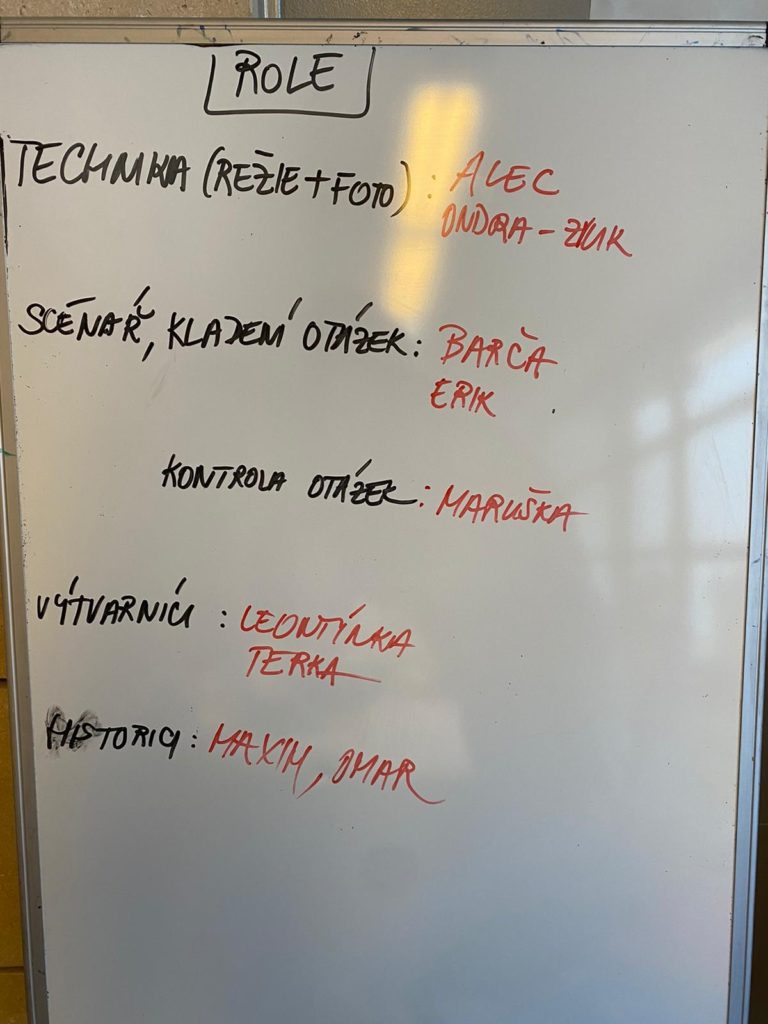 ROLE
TECHNIKA (REŽIE + FOTO) : ALEC
ONDRA - ZVUK
SCÉNÁŘ, KLADENÍ OTÁZEK : BARČA
ERIK
KONTROLA OTÁZEK : MARUŠKA
VÝTVARNÍCI : LEONTÍNKA
TERKA
HISTORICI : MAXIM, OMAR